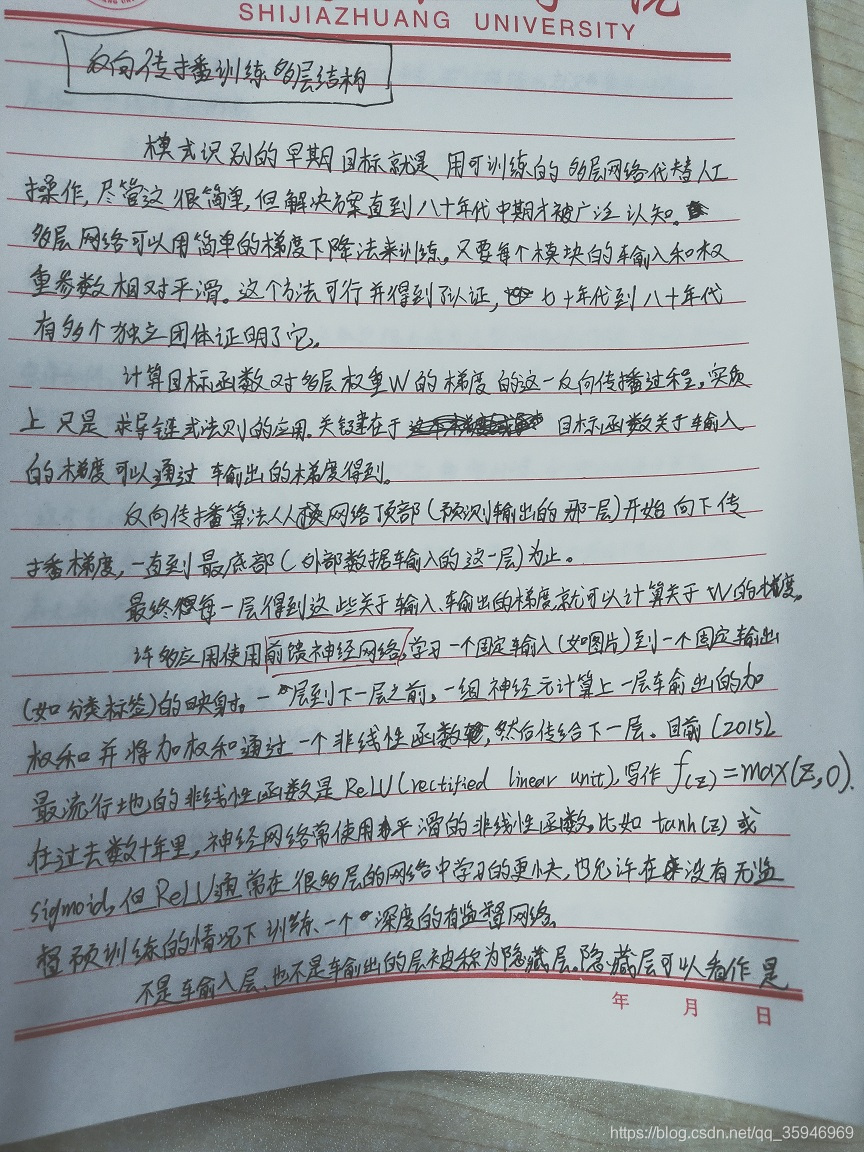 SHIJIAZHUANG UNIVERSITY
反向传播训练多层结构
模式识别的早期目标就是 用可训练的 多层网络代替人工
操作,尽管这很简单,但解决方案直到八十年代中期才被广泛认知。
多层网络可以用简单的梯度下降法来训练。又要每个模块的输入和权
重参数相对平滑。这个方法可行并得到了认证, 七十年代到八十年代
有多个独立团体证明了它。
计算目标函数对多层权重W的梯度的这一反向传播过程,实质
上只是 求导链式法则的应用.关键在于 目标函数关于输入
的梯度可以通过 输出的梯度得到。
反向传播算法从网络顶部(预测输出的那一层)开始向下传
播梯度,一直到最底部(外部数据输入的这一层)为止。
最终每一层得到这些关于输入、输出的梯度,就可以计算关于W的梯度。
许多应用使用前馈神经网络,学习一个固定输入(如图片)到一个固定输出
(如分类标签)的映射。一层到下一层之前。一组神经元计算上一层输出的加
权和并将加权和通过一个非线性函数,然后传给下一层。目前(2015)
最流行地的非线性函数是ReLU(rectified linear unit),写作 f(z)=max(z,0).
在过去数十年里,神经网络常使用平滑的非线性函数,比如 tanh(z) 或
sigmoid,但ReLU通常在很多层的网络中学习的更快,也允许在没有无监
督预训练的情况下训练一个深度的有监督网络。
不是输入层、也不是输出的层被称为隐藏层。隐藏层可以看作是
年 月 日
https://blog.csdn.net/qq_35946969